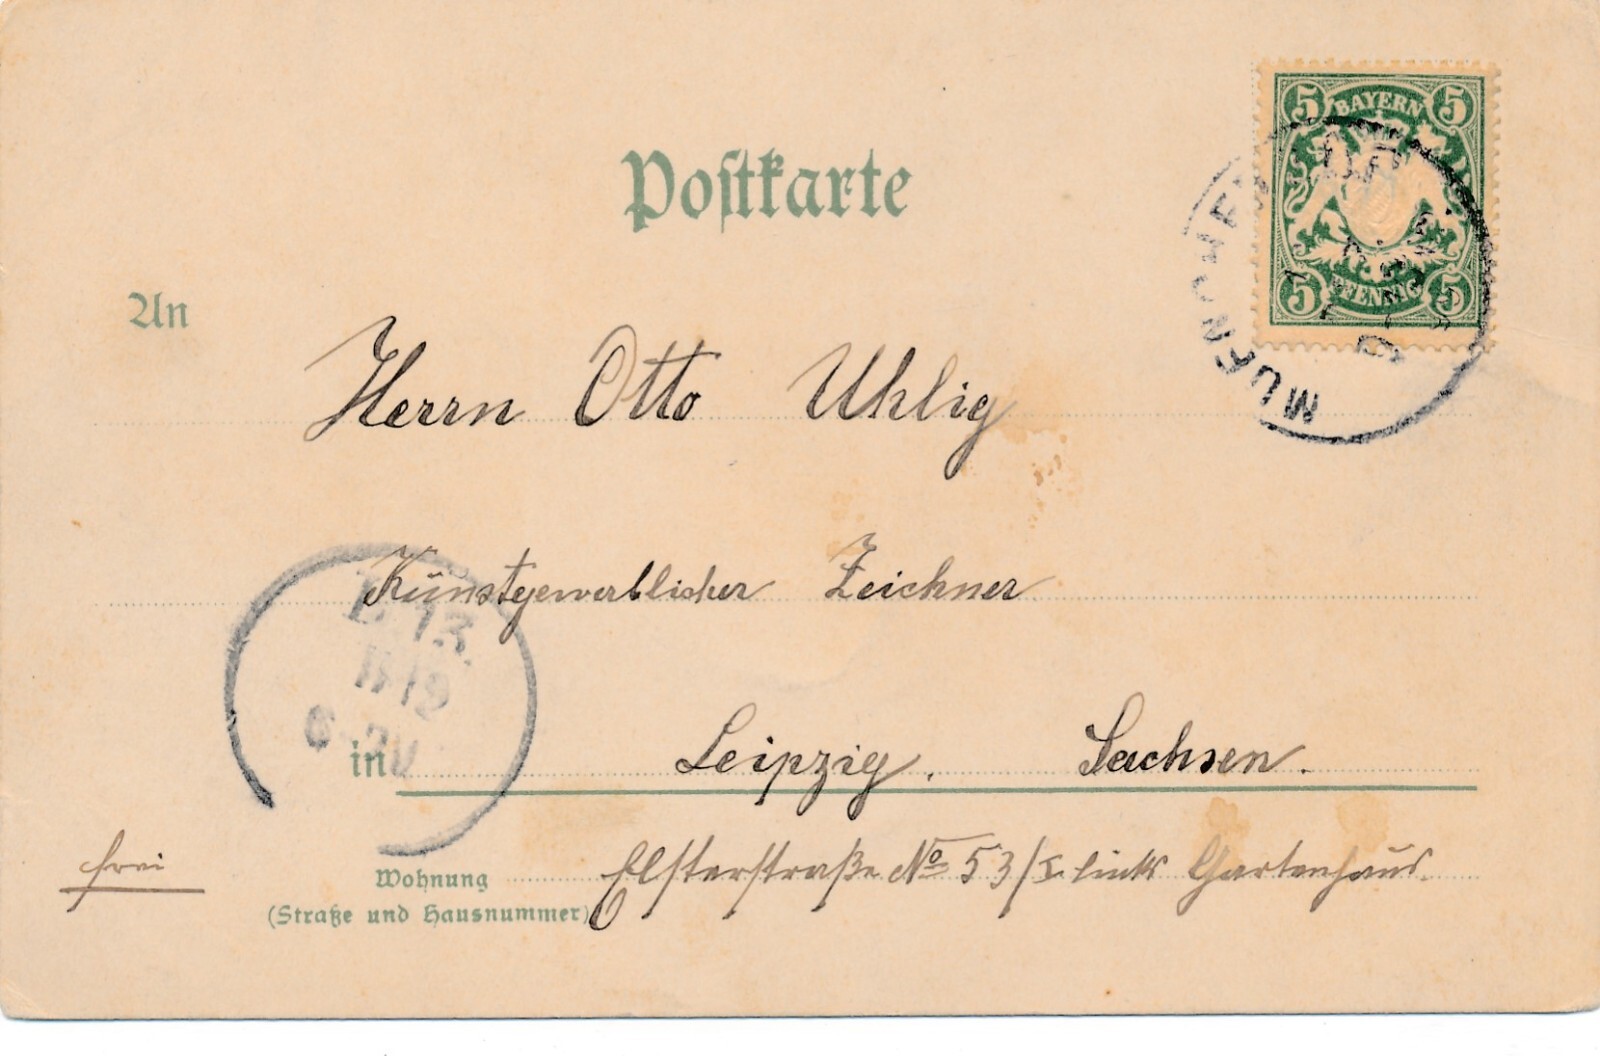 5 BAYERN 5
Postkarte
MUENCHEN
5 PFENNIG 5
An
Herrn Otto Uhlig
Kunstgewerblicher Zeichner
L. 13.
in Leipzig. Sachsen.
frei
Wohnung Elsterstraße No 53/I. links Gartenhaus.
(Straße und Hausnummer)